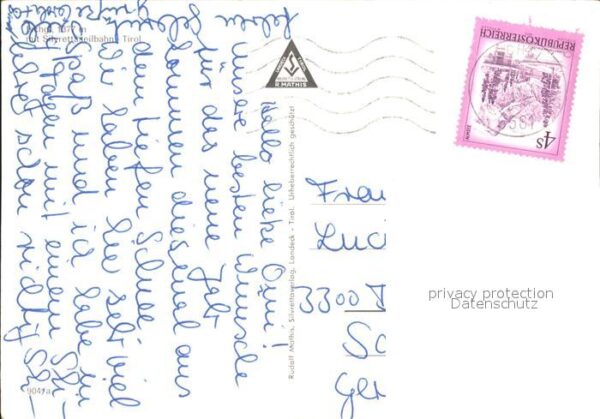 Ischgl, 1377 m
mit Silvrettaseilbahn, Tirol
Hallo liebe Omi!
unsere besten Wünsche
für das neue Jahr
kommen diesmal aus
dem tiefen Schnee
Wir haben hier sehr viel
Spaß und ich habe in
Tagen mit meinem Ski-
schon richtig Ski-
R MATHIS
Rudolf Mathis, Silvrettaverlag, Landeck - Tirol. Urheberrechtlich geschützt
904/a
REPUBLIK ÖSTERREICH
4S
Frau
Luci
3300
Sc
Ger
privacy protection
Datenschutz